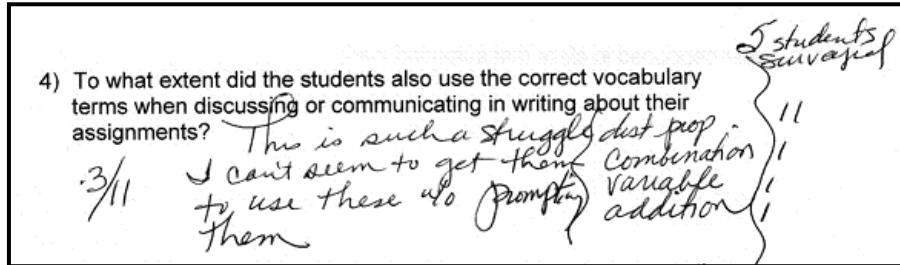 5 students
surveyed
4) To what extent did the students also use the correct vocabulary
terms when discussing or communicating in writing about their
assignments? This is such a struggle dist prop. 11
.3/11 I can't seem to get them combination 1
to use these w/o prompting variable 1
them addition 1